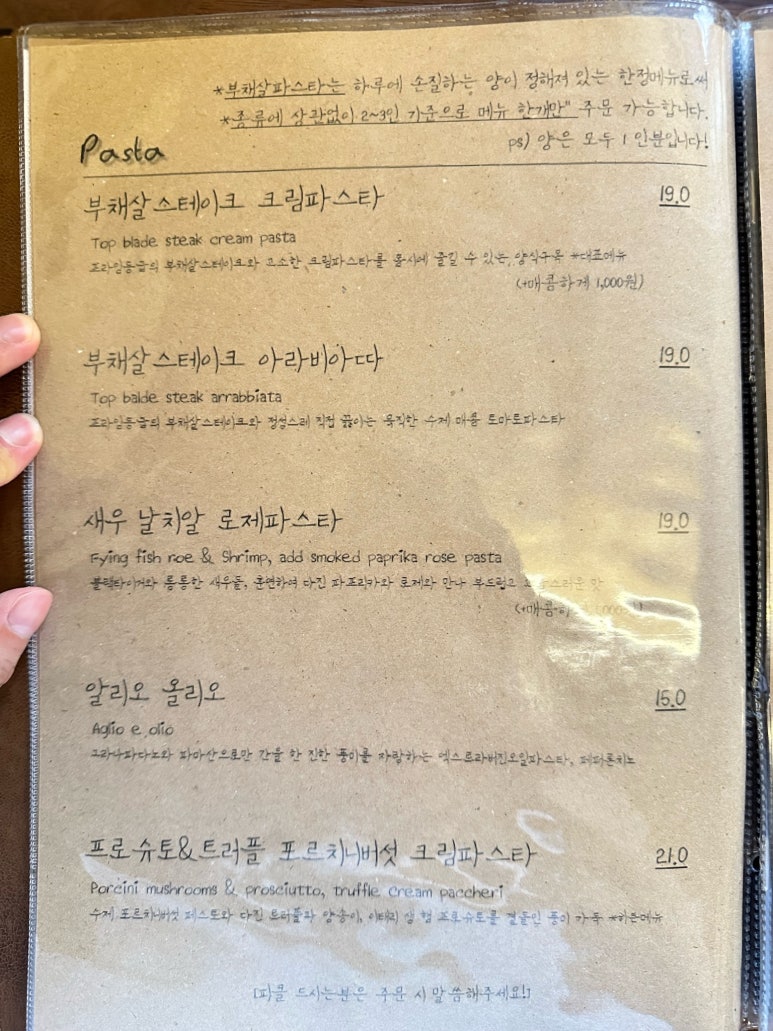 *부채살파스타는 하루에 손질하는 양이 정해져 있는 한정메뉴로써
*종류에 상관없이 2~3인 기준으로 메뉴 한개만" 주문 가능합니다.
ps) 양은 모두 1인분입니다!
Pasta
부채살 스테이크 크림파스타 19.0
Top blade steak cream pasta
프라임등급의 부채살스테이크와 고소한 크림파스타를 동시에 즐길 수 있는, 양식구독 *대표메뉴
(+매콤하게 1,000원)
부채살 스테이크 아라비아따 19.0
Top balde steak arrabbiata
프라임등급의 부채살스테이크와 정성스레 직접 끓이는 묵직한 수제 매콤 토마토파스타
새우 날치알 로제파스타 19.0
Fying fish roe & Shrimp, add smoked paprika rose pasta
블랙타이거와 통통한 새우들, 훈연하여 다진 파프리카와 로제와 만나 부드럽고 맛
(+매콤하게 1,000원)
알리오 올리오 15.0
Aglio e olio
그라나파다노와 파마산으로만 간을 한 진한 풍미를 자랑하는 엑스트라버진오일파스타, 페퍼론치노
프로슈토&트러플 포르치니버섯 크림파스타 21.0
Porcini mushrooms & prosciutto, truffle cream paccheri
수제 포르치니버섯 페스토와 다진 트러플과 양송이, 이태리 생 햄 프로슈토를 곁들인 풍미 가득 *히든메뉴
[피클 드시는분은 주문 시 말씀해주세요!]